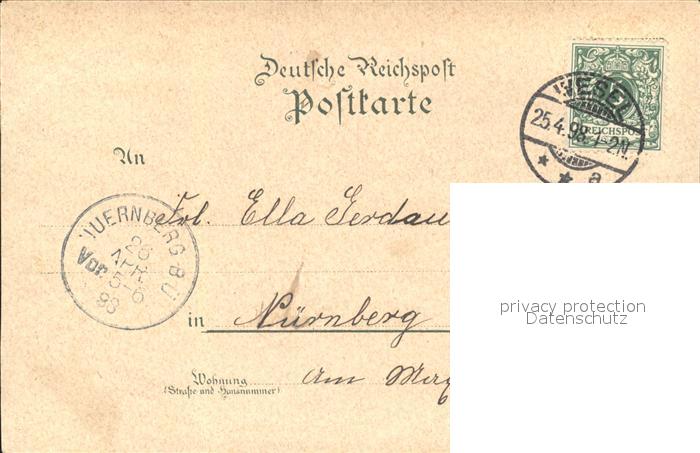 Deutsche Reichspost
Postkarte
WESEL
25.4.98.1-2N.
a
REICHSPO
An
Frl. Ella Gerdau
NUERNBERG B.U
26
APR
Vor. 5-6
98
privacy protection
Datenschutz
in Nürnberg
Wohnung
(Straße und Hausnummer)
Am